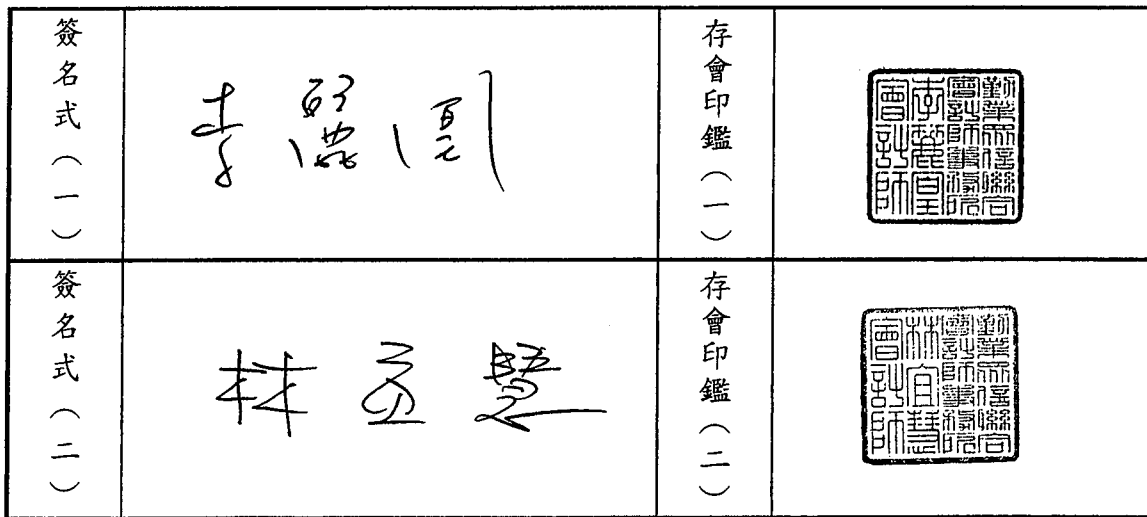 簽名式（一）
李麗凰
存會印鑑（一）
勤業眾信聯合
會計師事務所
李麗凰
會計師
簽名式（二）
林宜慧
存會印鑑（二）
勤業眾信聯合
會計師事務所
林宜慧
會計師